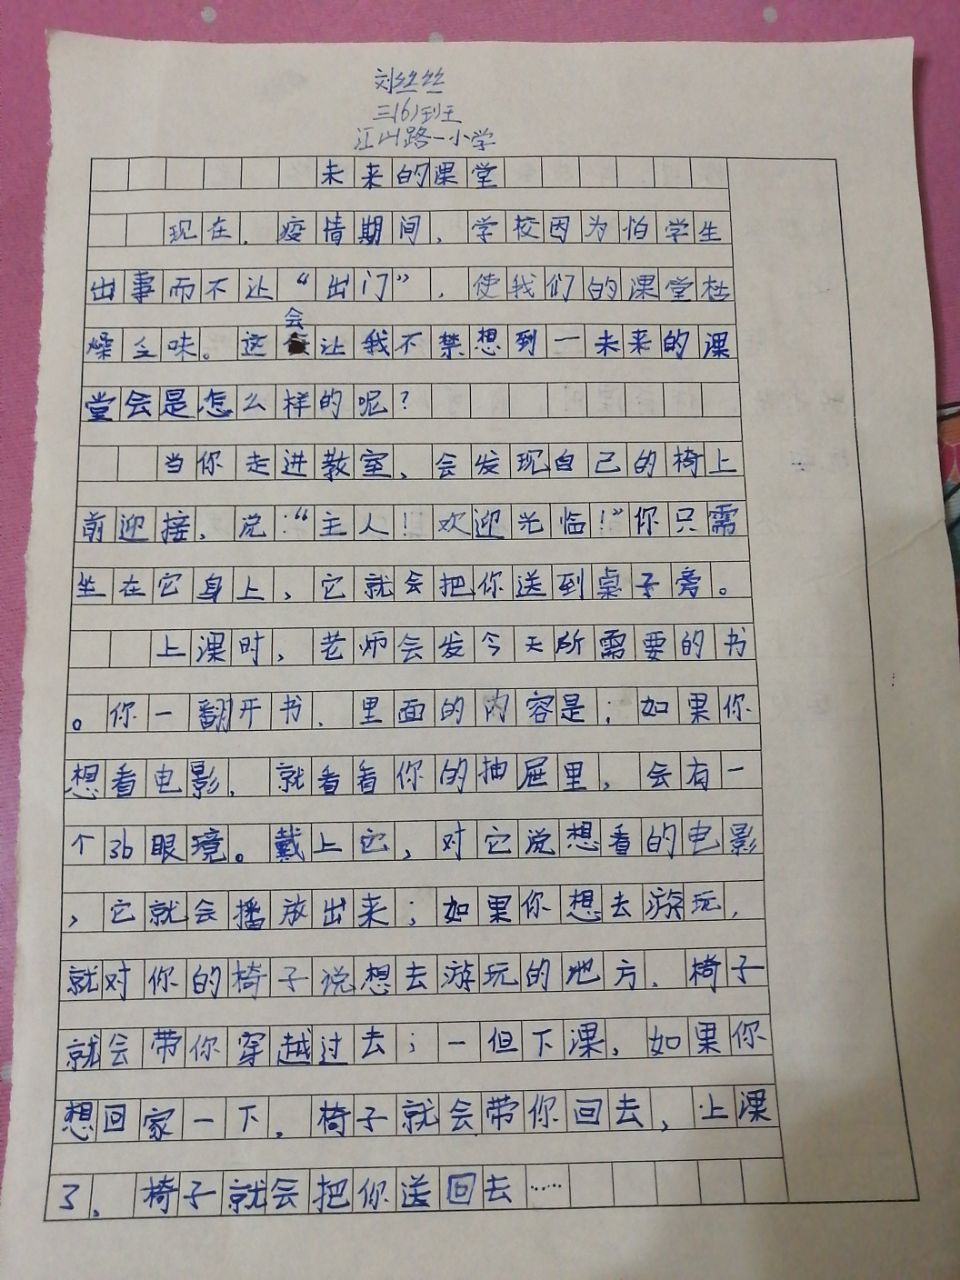 刘丝丝
三(6)班
江山路一小学
未来的课堂
现在，疫情期间，学校因为怕学生
出事而不让“出门”，使我们的课堂枯
燥乏味。这会让我不禁想到一未来的课
堂会是怎么样的呢?
当你走进教室，会发现自己的椅上
前迎接，说:“主人!欢迎光临!”你只需
坐在它身上，它就会把你送到桌子旁。
上课时，老师会发今天所需要的书
。你一翻开书，里面的内容是；如果你
想看电影，就看看你的抽屉里，会有一
个3b眼境。戴上它，对它说想看的电影
，它就会播放出来；如果你想去游玩，
就对你的椅子说想去游玩的地方，椅子
就会带你穿越过去；一但下课，如果你
想回家一下，椅子就会带你回去，上课
了，椅子就会把你送回去……